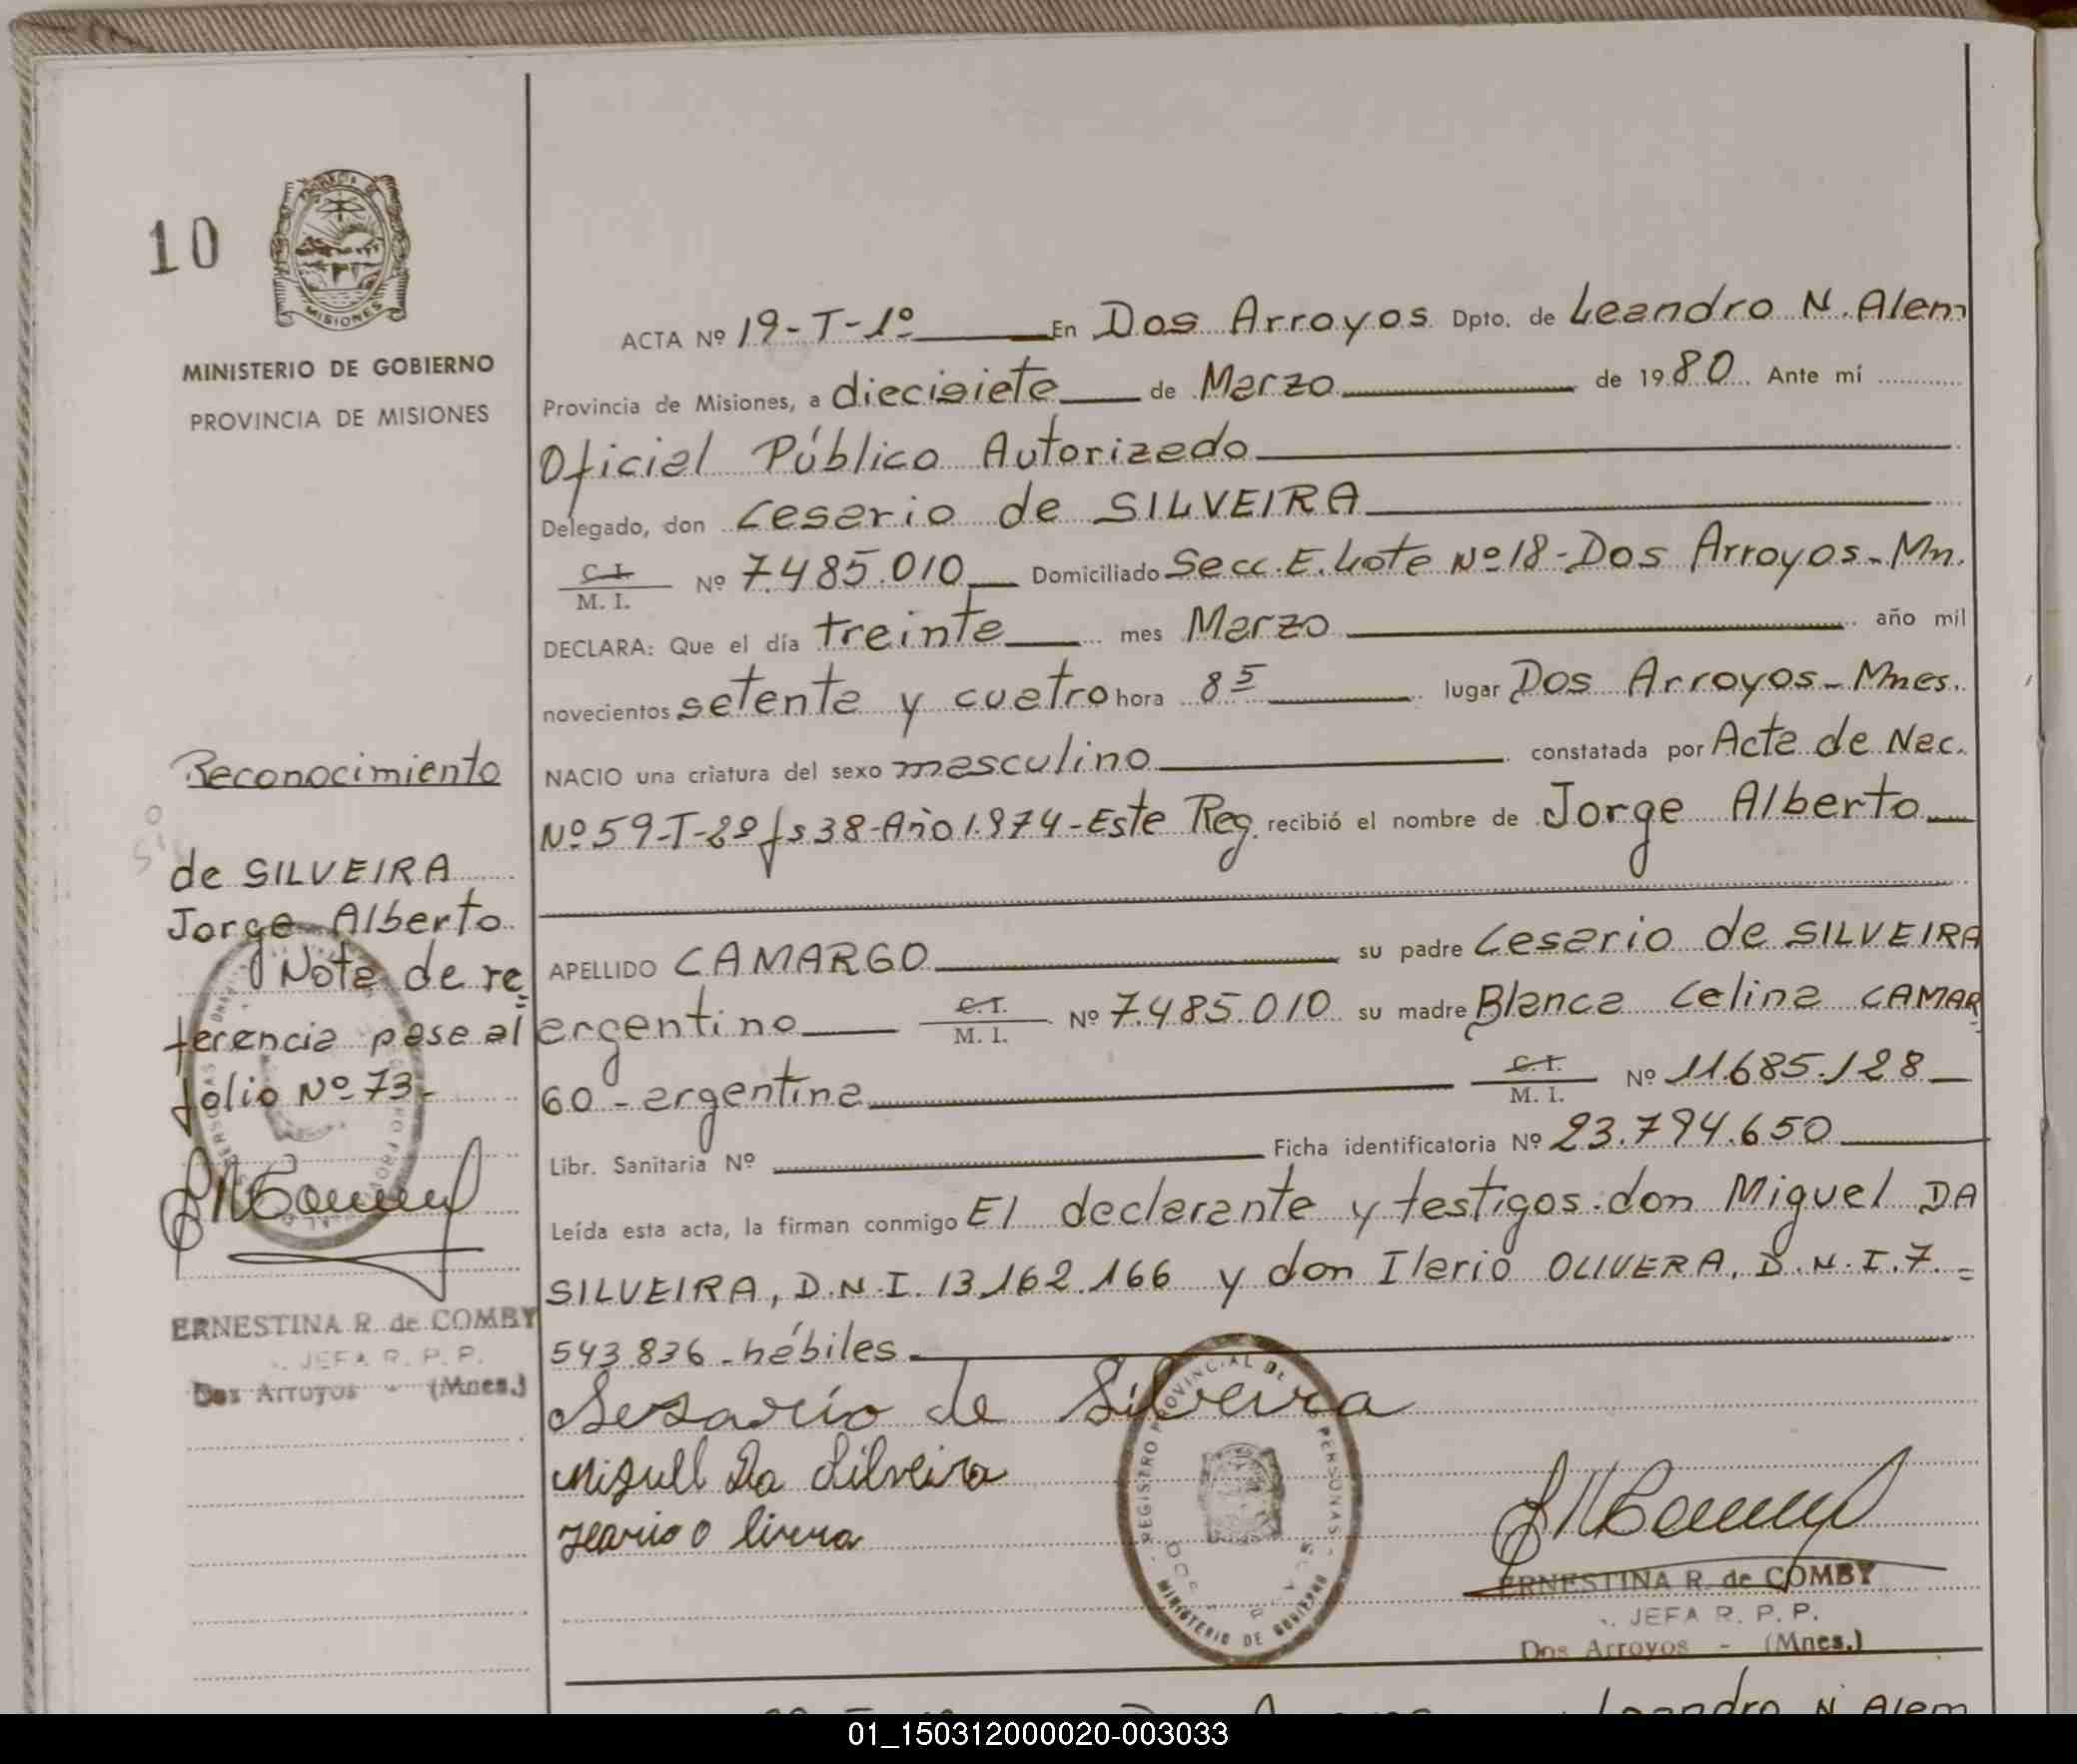 10
MISIONES
MINISTERIO DE GOBIERNO
PROVINCIA DE MISIONES
Reconocimiento
de SILVEIRA
Jorge Alberto
Nota de re=
ferencia pase al
folio Nº 73-
ERNESTINA R. de COMBY
JEFA R. P. P.
Dos Arroyos - (Mnes.)
ACTA Nº 19-T-1º En Dos Arroyos Dpto. de Leandro N. Alem
Provincia de Misiones, a diecisiete de Marzo de 1980 Ante mí
Oficial Público Autorizado
Delegado, don Cesario de SILVEIRA
C. I. / M. I. Nº 7.485.010 Domiciliado Secc. E. Lote Nº 18-Dos Arroyos-Mn.
DECLARA: Que el día treinta mes Marzo año mil
novecientos setenta y cuatro hora 8 5 lugar Dos Arroyos-Mnes.
NACIO una criatura del sexo masculino constatada por Acta de Nac.
Nº 59-T-2º fs 38-Año 1.974-Este Reg. recibió el nombre de Jorge Alberto
APELLIDO CAMARGO su padre Cesario de SILVEIRA
argentino C. I. / M. I. Nº 7.485.010 su madre Blanca Celina CAMAR=
GO - argentina C. I. / M. I. Nº 11.685.128
Libr. Sanitaria Nº Ficha identificatoria Nº 23.794.650
Leída esta acta, la firman conmigo El declarante y testigos: don Miguel DA
SILVEIRA, D.N.I. 13.162.166 y don Ilario OLIVERA, D.N.I. 7.=
543.836 - hábiles.
Sesario de Silveira
Miguell Da Silveira
Ilario Olivera
REGISTRO PROVINCIAL DE PERSONAS
MINISTERIO DE GOBIERNO
ERNESTINA R. de COMBY
JEFA R. P. P.
Dos Arroyos - (Mnes.)
Leandro N. Alem
01_150312000020-003033